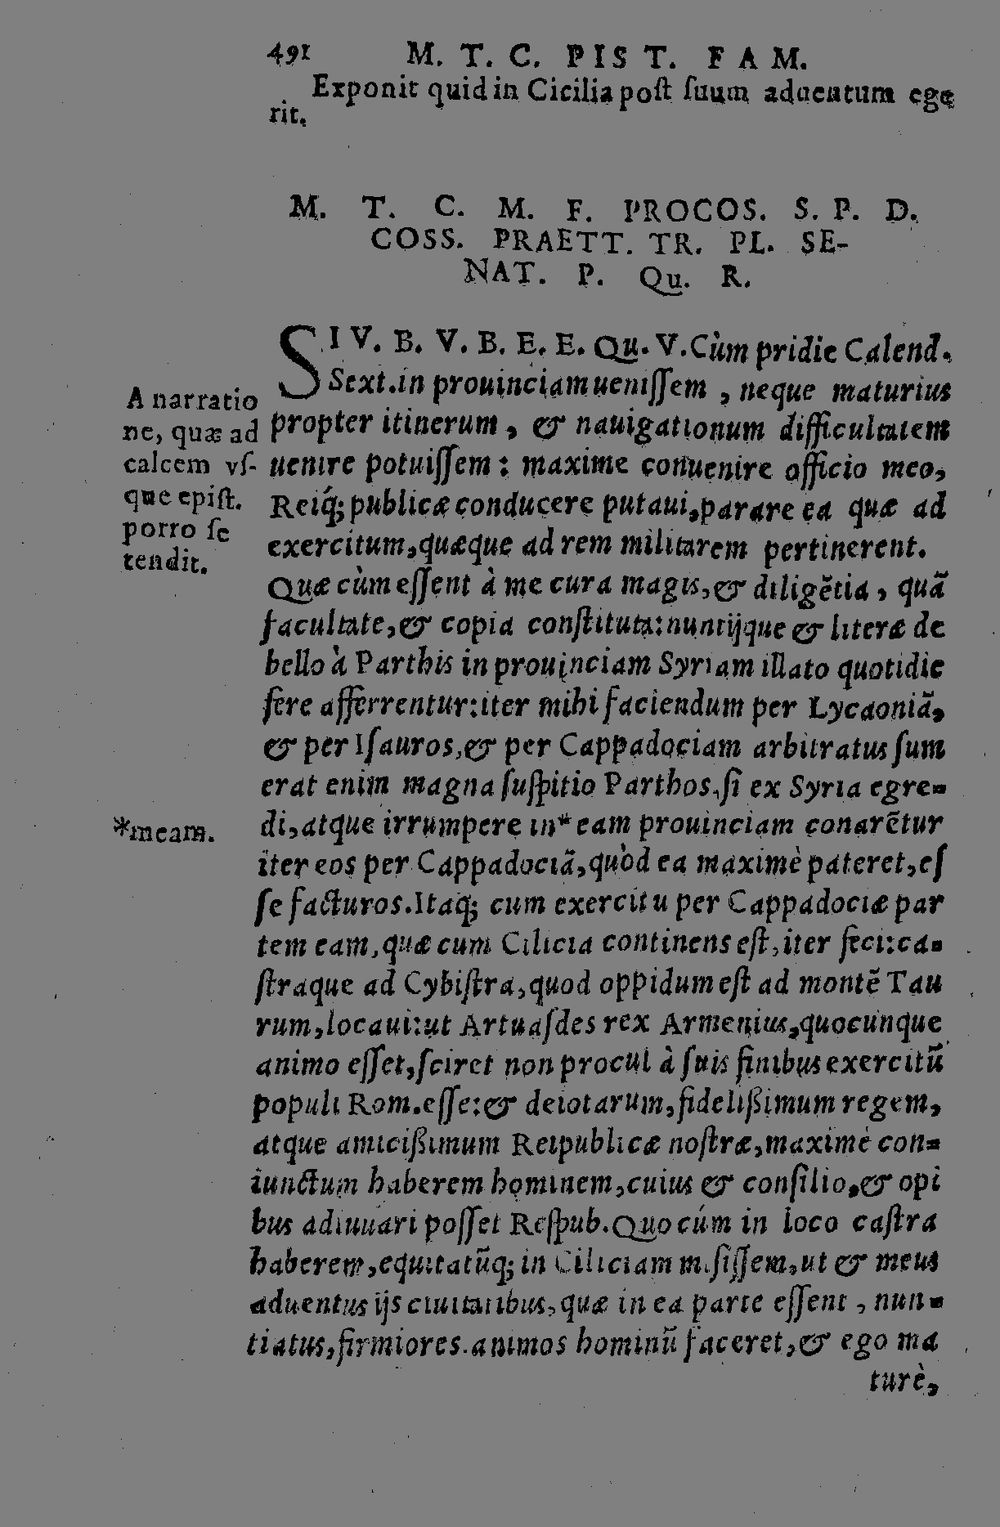 491 M. T. C. PIST. FAM.
Exponit quid in Cicilia post suum aduentum ege
rit.
M. T. C. M. F. PROCOS. S. P. D.
COSS. PRAETT. TR. PL. SE-
NAT. P. Qu. R.
SI V. B. V. B. E. E. Qu. V. Cùm pridie Calend.
Sext. in prouinciam uenissem, neque maturius
propter itinerum, & nauigationum difficultatem
uenire potuissem: maxime conuenire officio meo,
Reiq́; publicæ conducere putaui, parare ea quæ ad
exercitum, quæque ad rem militarem pertinerent.
Quæ cùm essent à me cura magis, & diligẽtia, quã
facultate, & copia constituta: nuntijque & literæ de
bello à Parthis in prouinciam Syriam illato quotidie
fere afferrentur: iter mihi faciendum per Lycaoniã,
& per Isauros, & per Cappadociam arbitratus sum
erat enim magna suspitio Parthos, si ex Syria egre-
di, atque irrumpere in* eam prouinciam conarẽtur
iter eos per Cappadociã, quòd ea maximè pateret, es
se facturos. Itaq; cum exercitu per Cappadociæ par
tem eam, quæ cum Cilicia continens est, iter feci: ca-
straque ad Cybistra, quod oppidum est ad montẽ Tau
rum, locaui: ut Artuasdes rex Armenius, quocunque
animo esset, sciret non procul à suis finibus exercitũ
populi Rom. esse: & deiotarum, fidelißimum regem,
atque amicißimum Reipublicæ nostræ, maximè con-
iunctum haberem hominem, cuius & consilio, & opi
bus adiuuari posset Respub. Quo cúm in loco castra
haberem, equitatũq; in Ciliciam misissem, ut & meus
aduentus ijs ciuitatibus, quæ in ea parte essent, nun-
tiatus, firmiores animos hominũ faceret, & ego ma
turè,
A narratio
ne, quæ ad
calcem vs-
que epist.
porro se
tendit.
*meam.